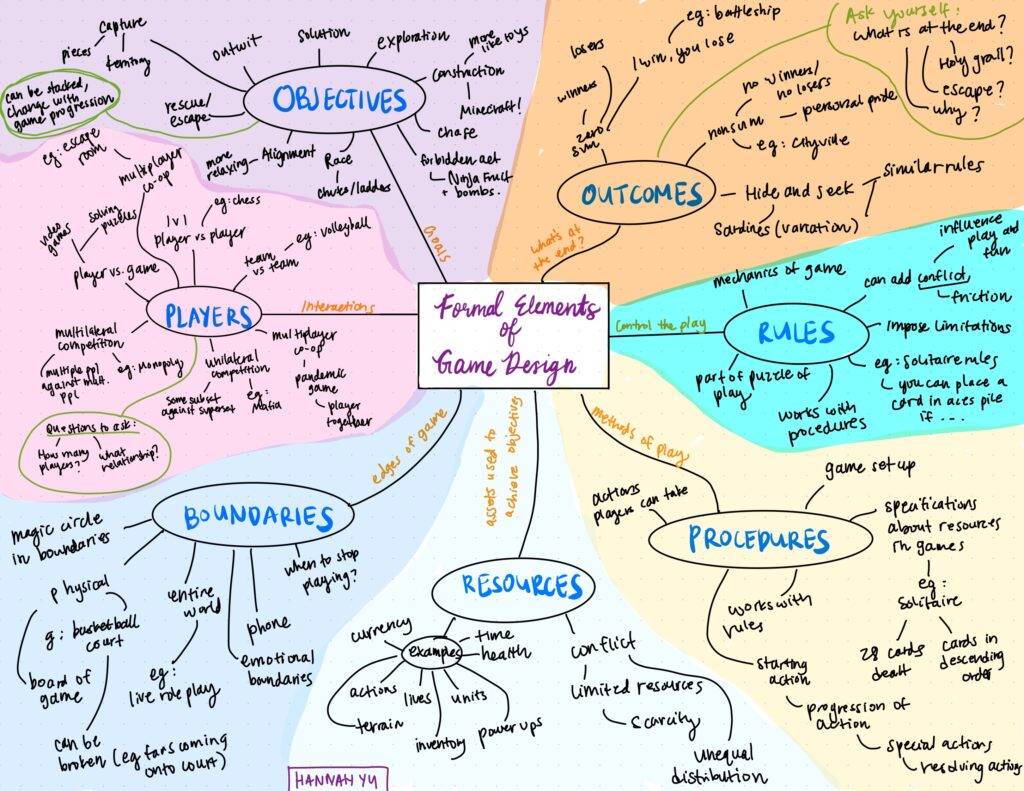 Formal Elements
of
Game Design
Goals
OBJECTIVES
capture
pieces
territory
outwit
solution
exploration
construction
more
like toys
Minecraft!
chase
forbidden act
Ninja Fruit
+ bombs.
Race
chutes/ladders
Alignment
more
relaxing
rescue/
escape
can be stacked,
change with
game progression
what's at
the end?
OUTCOMES
zero
sum
winners
losers
I win, you lose
eg: battleship
nonsum
no winners/
no losers
personal pride
eg: Cityville
Hide and seek
Sardines (variation)
similar rules
Ask yourself:
what is at the end?
Holy grail?
escape?
why?
Interactions
PLAYERS
multiplayer
co-op
eg: escape
room
player vs. game
video
games
solving
puzzles
1v1
player vs player
eg: chess
team
vs team
eg: volleyball
multilateral
competition
multiple ppl
against mult.
ppl
eg: Monopoly
unilateral
competition
some subset
against superset
eg:
Mafia
multiplayer
co-op
pandemic
game
player
together
Questions to ask:
How many
players?
what
relationship?
control the play
RULES
mechanics of game
can add conflict,
influence
play and
fun
friction
impose limitations
eg: solitaire rules
you can place a
card in aces pile
if ....
works with
procedures
part of puzzle of
play
edges of game
BOUNDARIES
magic circle
in boundaries
physical
g: basketball
court
board of
game
can be
broken (eg fans coming
onto court)
entire
world
eg:
live role play
phone
emotional
boundaries
when to stop
playing?
assets used to
achieve objective
RESOURCES
examples
currency
time
health
actions
terrain
lives
inventory
units
power ups
conflict
limited resources
scarcity
unequal
distribution
methods of play
PROCEDURES
actions
players can take
game set up
specifications
about resources
in games
eg:
Solitaire
28 cards
dealt
cards in
descending
order
works with
rules
starting
action
progression of
action
special actions
resolving actions
HANNAH YU